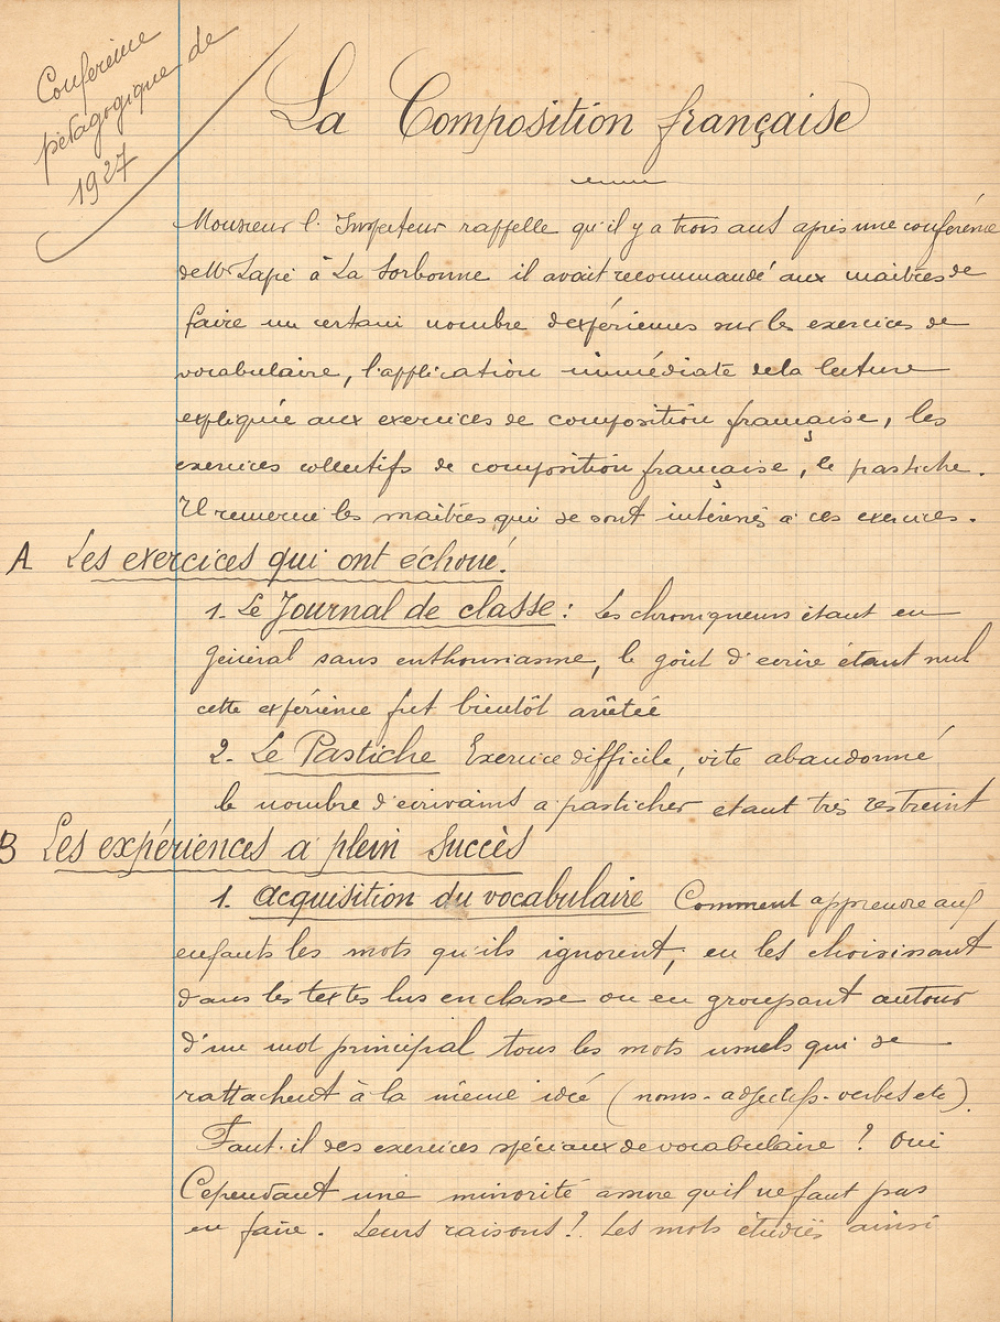 Conférence
pédagogique de
1927
La Composition française
Monsieur l. Inspecteur rappelle qu'il y a trois ans après une conférence
de Mr Lapie à La Sorbonne il avait recommandé aux maîtres de
faire un certain nombre d'expériences sur les exercices de
vocabulaire, l'application immédiate de la lecture
expliquée aux exercices de composition française, les
exercices collectifs de composition française, le pastiche.
Il remercie les maîtres qui se sont intéressés à ces exercices.
A Les exercices qui ont échoué.
1. Le Journal de classe : Les chroniqueurs étant en
général sans enthousiasme, le goût d'écrire étant nul
cette expérience fut bientôt arrêtée
2. Le Pastiche Exercice difficile, vite abandonné
le nombre d'écrivains a pasticher etant très restreint
B Les expériences a plein succès
1. acquisition du vocabulaire Comment apprendre aux
enfants les mots qu'ils ignorent; en les choisissant
dans les textes lus en classe ou en groupant autour
d'un mot principal tous les mots usuels qui se
rattachent à la même idée (noms - adjectifs - verbes etc).
Faut.il des exercices spéciaux de vocabulaire ? Oui
Cependant une minorité assure qu'il ne faut pas
en faire. Leurs raisons ?. Les mots étudiés ainsi